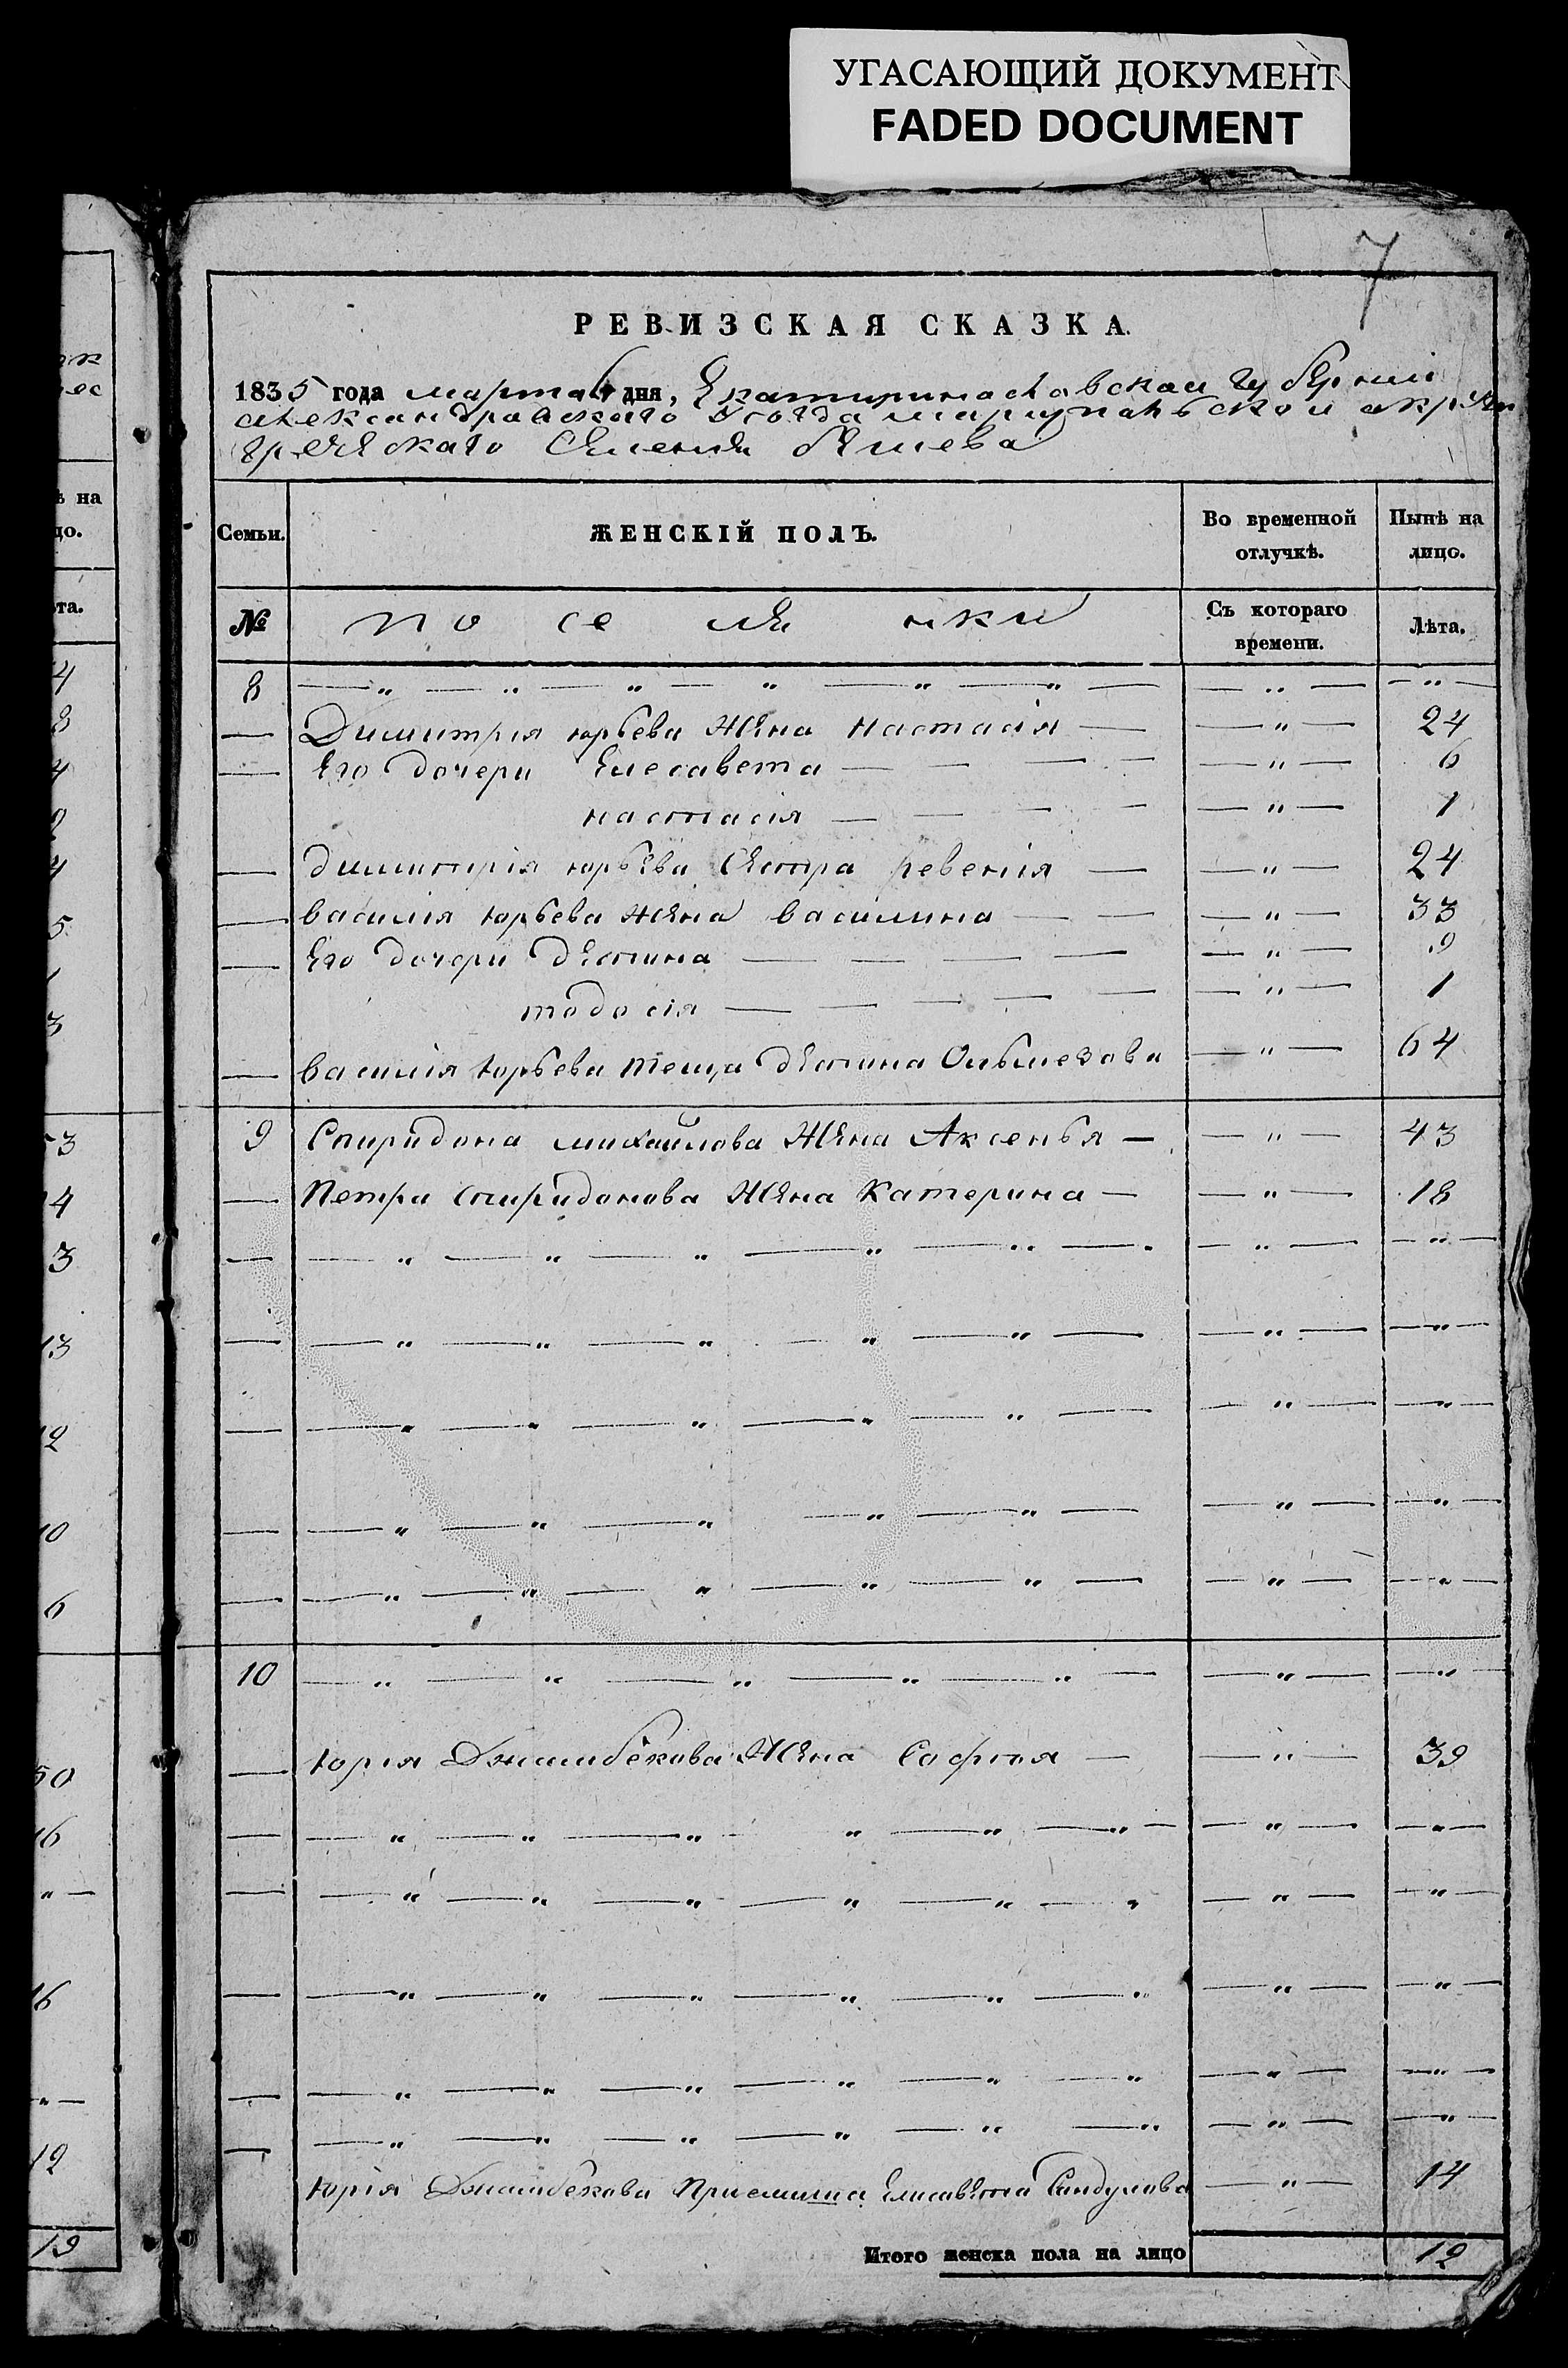 УГАСАЮЩИЙ ДОКУМЕНТ
FADED DOCUMENT
7
РЕВИЗСКАЯ СКАЗКА.
1835 года марта 6 дня, Екатиринославской губерніи
александравскаго уезда мариупальской округи
греческаго селения бешева
Семьи. ЖЕНСКІЙ ПОЛЪ. Во временной отлучкѣ. Нынѣ на лицо.
№ поселянки Съ котораго времени. Лѣта.
8 — " — " — " — " — " — " — — " — — " —
— Димитрия юрьева жена настасія — — " — 24
— Его дочери Елесавета — — — — — " — 6
настасія — — — — — " — 1
— димитрія юрьева сестра ревекія — — " — 24
— василия юрьева жена василина — — — " — 33
— Его дочери деспина — — — — — " — 9
тодосія — — — — — — " — 1
— василія юрьева теща деспина — " — 64
9 Спиридона михайлова жена Аксенья — — " — 43
— Петра спиридонова жена Катерина — — " — 18
— — " — " — " — " — " — " — " — — " —
— — " — " — " — " — " — — " — — " —
— — " — " — " — " — " — — " — — " —
— — " — " — " — " — " — — " — — " —
— — " — " — " — " — " — — " — — " —
10 — " — " — " — " — " — — " — — " —
— юрия Джамбекова жена София — — " — 39
— — " — " — " — " — " — " — — " — — " —
— — " — " — " — " — " — " — " — — " —
— — " — " — " — " — " — " — " — — " —
— — " — " — " — " — " — " — " — — " —
— — " — " — " — " — " — " — " — — " —
юрія Джамбекова Приемыша Елисавета — " — 14
Итого женска пола на лицо 12